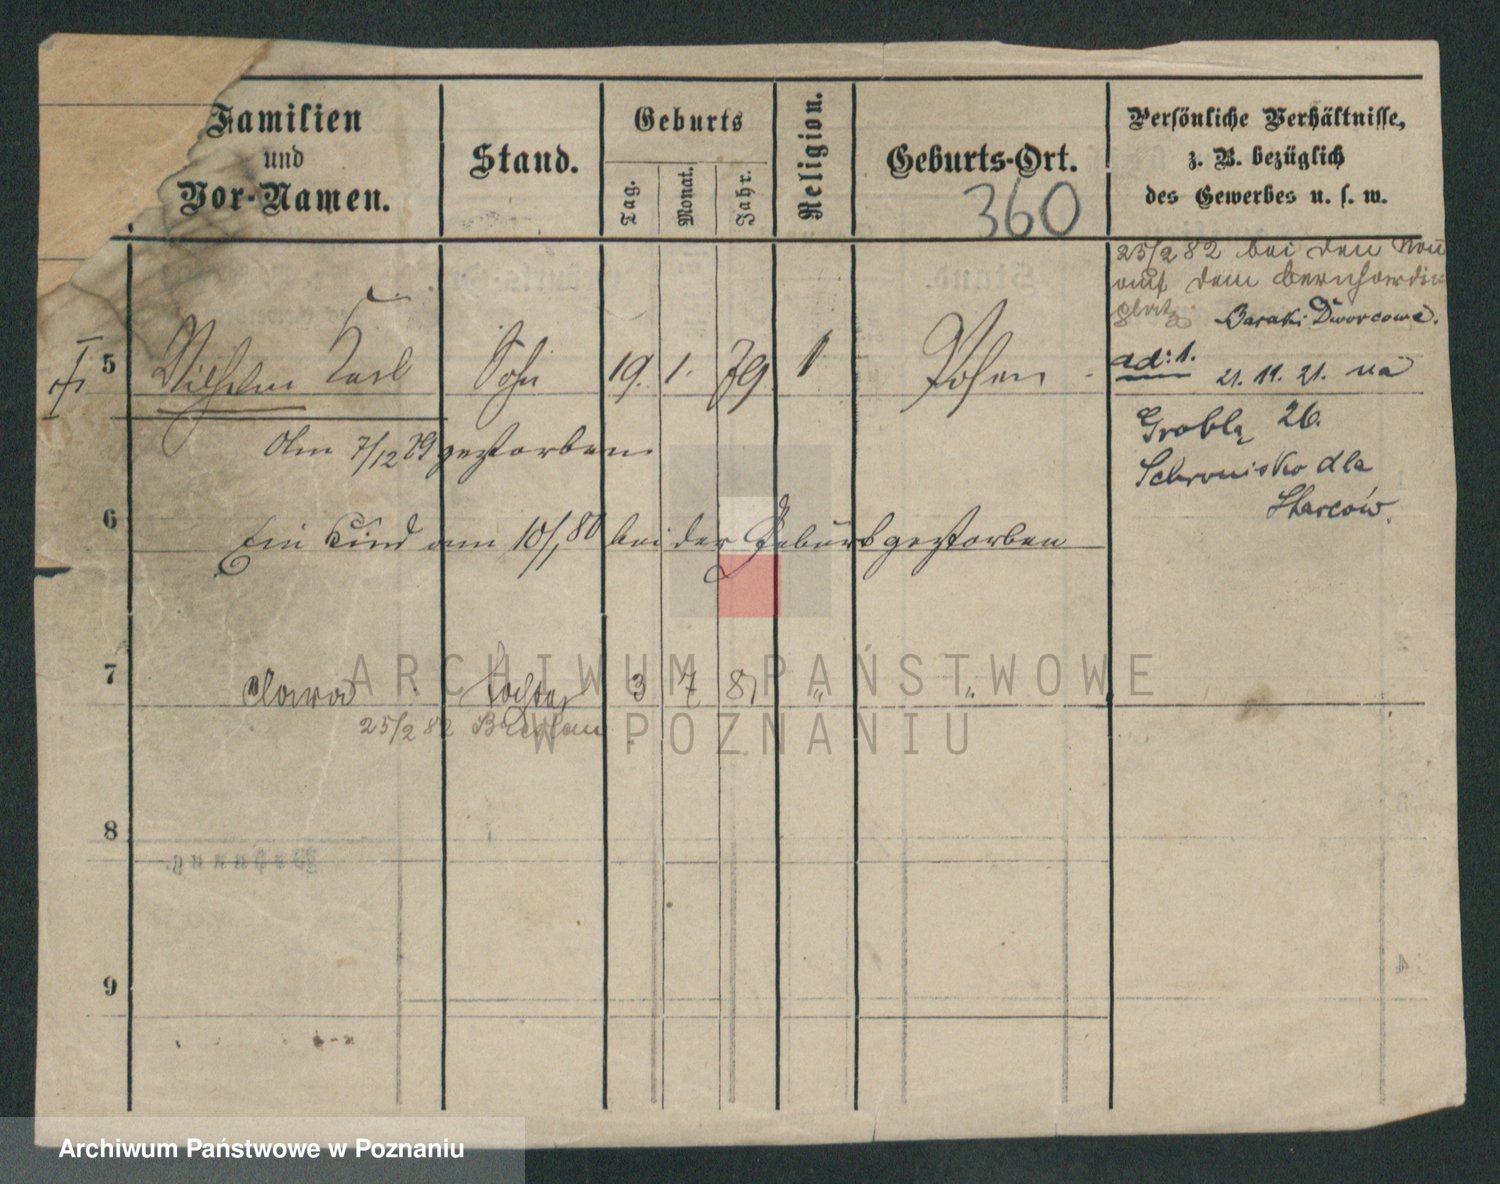 Familien
und
Vor-Namen.
Stand.
Geburts
Tag.
Monat.
Jahr.
Religion.
Geburts-Ort.
360
Persönliche Verhältnisse,
z. B. bezüglich
des Gewerbes u. s. w.
25/2 82 bei den
auf dem Bernhardin
platz Baraki Dworcowe.
5 Wilhelm Karl Sohn 19. 1. 79 Posen
ad: 1.
21. 11. 21. na
Am 7/12 79 gestorben
Grobla 26.
Schronisko dla
Starców.
6 Ein Kind am 10/1 80 bei der Geburt gestorben
7 Clara Tochter 3 7 81 " "
25/2 82 Breslau
8
9
ARCHIWUM PAŃSTWOWE
W POZNANIU
Archiwum Państwowe w Poznaniu